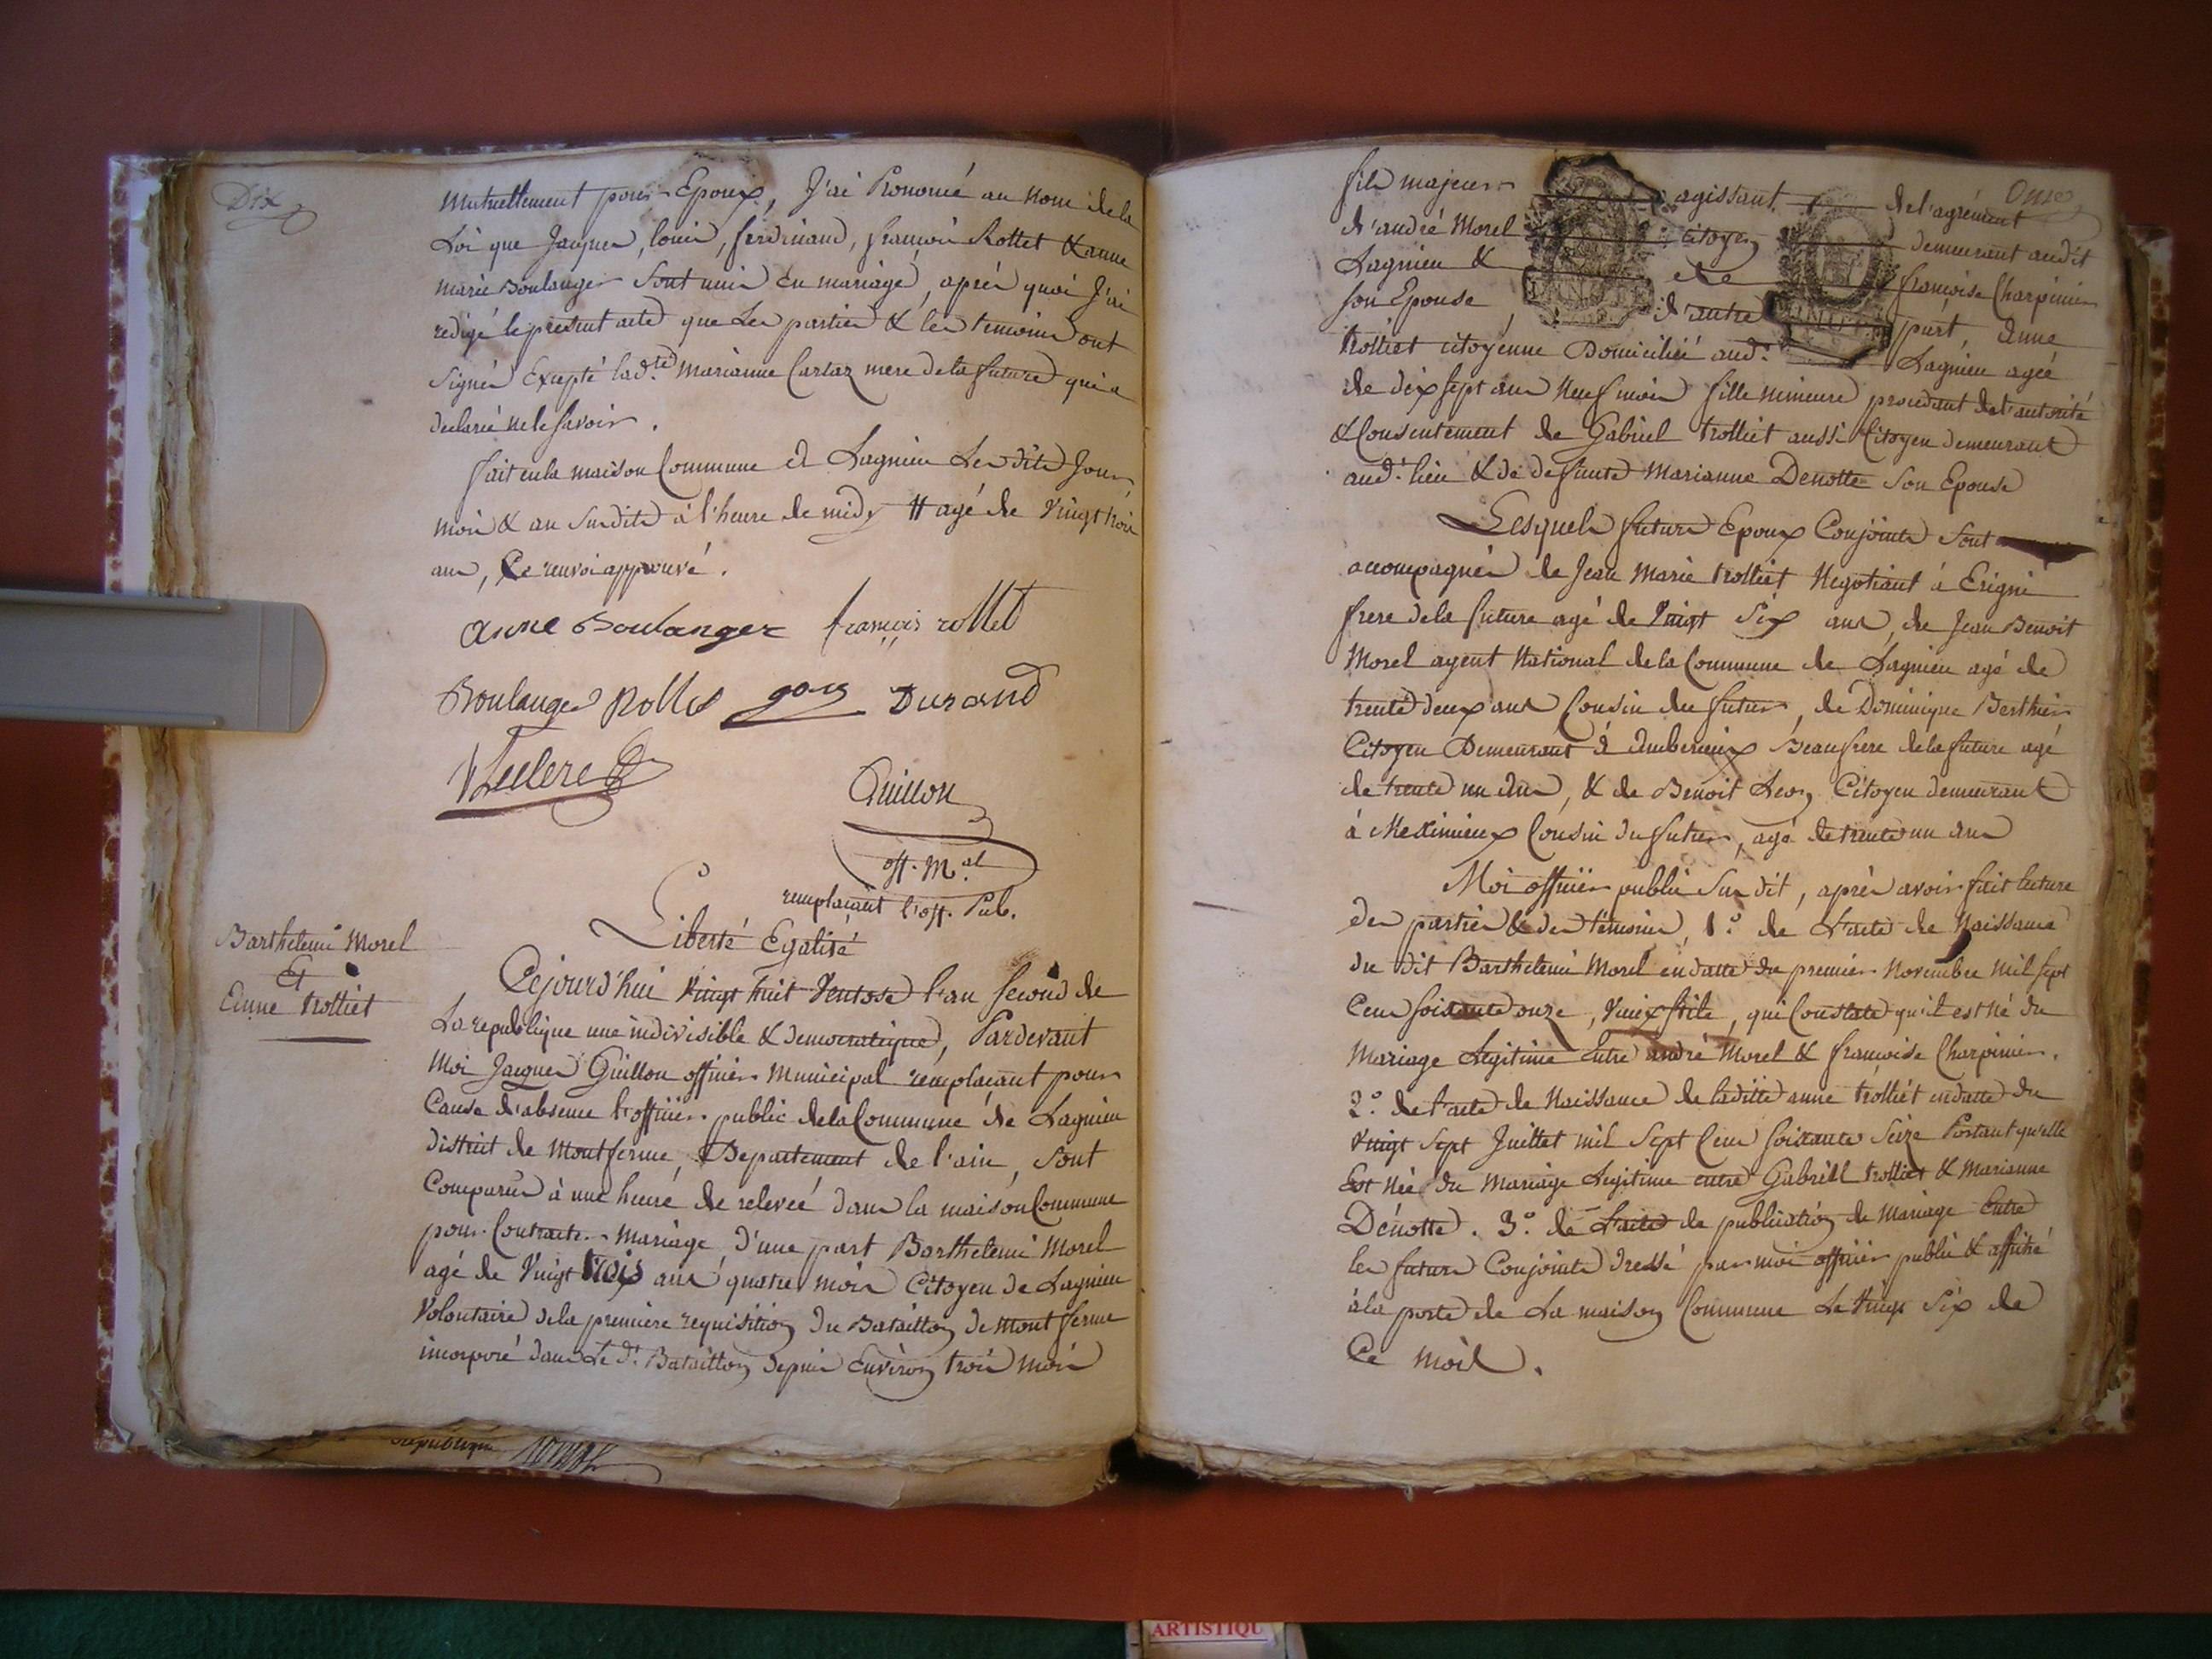 Dix
Mutuellement pour Epoux, J'ai Prononcé au Nom de la
Loi que Jacques, louis, ferdinand, françois Rollet & anne
marie Boulanger Sont unis en mariage, après quoi J'ai
redigé le present acte que Les parties & les temoins ont
Signés Excepté lad.te Marianne Carlaz mere de la future qui a
declaré ne le Savoir.
fait en la maison Commune de Lagnieu Les dits Jour
mois & an Susdits à l'heure de midy # agé de Vingt trois
ans, Ce renvoi approuvé.
anne Boulanger françois rollet
Boulanger Rollet Durand
Leclerc
Guillon
off. M.al
remplaçant l'off. Pub.
Liberté Egalité
Barthelemi Morel
Et
Anne trolliet
Cejourd'hui Vingt huit Ventose l'an second de
La republique une indivisible & democratique, Pardevant
Moi Jacques Guillon officier Municipal remplacant pour
Cause d'absence l'officier public de la Commune de Lagnieu
district de Montferme, Departement de l'ain, Sont
Comparus à une heure de relevée dans la maison Commune
pour Contracter Mariage, d'une part Barthelemi Morel
agé de Vingt trois ans quatre mois Citoyen de Lagnieu
Volontaire de la premiere requisition du Bataillon de Mont ferme
incorporé dans Le d.t Bataillon depuis Environ trois mois
republique
Onze
fils majeur agissant de l'agrément
d'andré Morel citoyen demeurant audit
Lagnieu & de françoise Charpinier
son Epouse, d'autre part, anne
trolliet citoyenne Domiciliée aud.t Lagnieu agée
de dix sept ans Neuf mois fille mineure procedant de l'autorité
& Consentement de Gabriel trolliet aussi Citoyen demeurant
aud.t lieu & de defunte Marianne Denotte Son Epouse
Lesquels futurs Epoux Conjoints Sont
accompagnés de Jean Marie trolliet Negotiant à Erigni
frere de la future agé de Vingt Six ans, de Jean Benoit
Morel agent National de la Commune de Lagnieu agé de
trente deux ans Cousin du futur, de Dominique Berthier
Citoyen Demeurant à Amberieux Beaufrere de la future agé
de trente un ans, & de Benoit Leon Citoyen demeurant
à Meximieux Cousin du futur, agé de trente un ans
Moi officier public Sus dit, après avoir fait lecture
des parties & des témoins, 1.° de L'acte de Naissance
du dit Barthelemi Morel en datte du premier Novembre mil sept
Cens soixante onze, Vieux stile, qui Constate qu'il est Né du
Mariage Legitime Entre andré Morel & françoise Charpinier.
2.° de l'acte de Naissance de laditte anne trolliet en datte du
Vingt Sept Juillet mil Sept Cens soixante Seize Portant qu'elle
Est Née du Mariage Legitime entre Gabriel trolliet & Marianne
Dénotte. 3.° de L'acte de publication de Mariage Entre
les futurs Conjoints dressé par moi officier public & affiché
à la porte de La maison Commune Le Vingt Six de
Ce mois.
ARTISTIQU